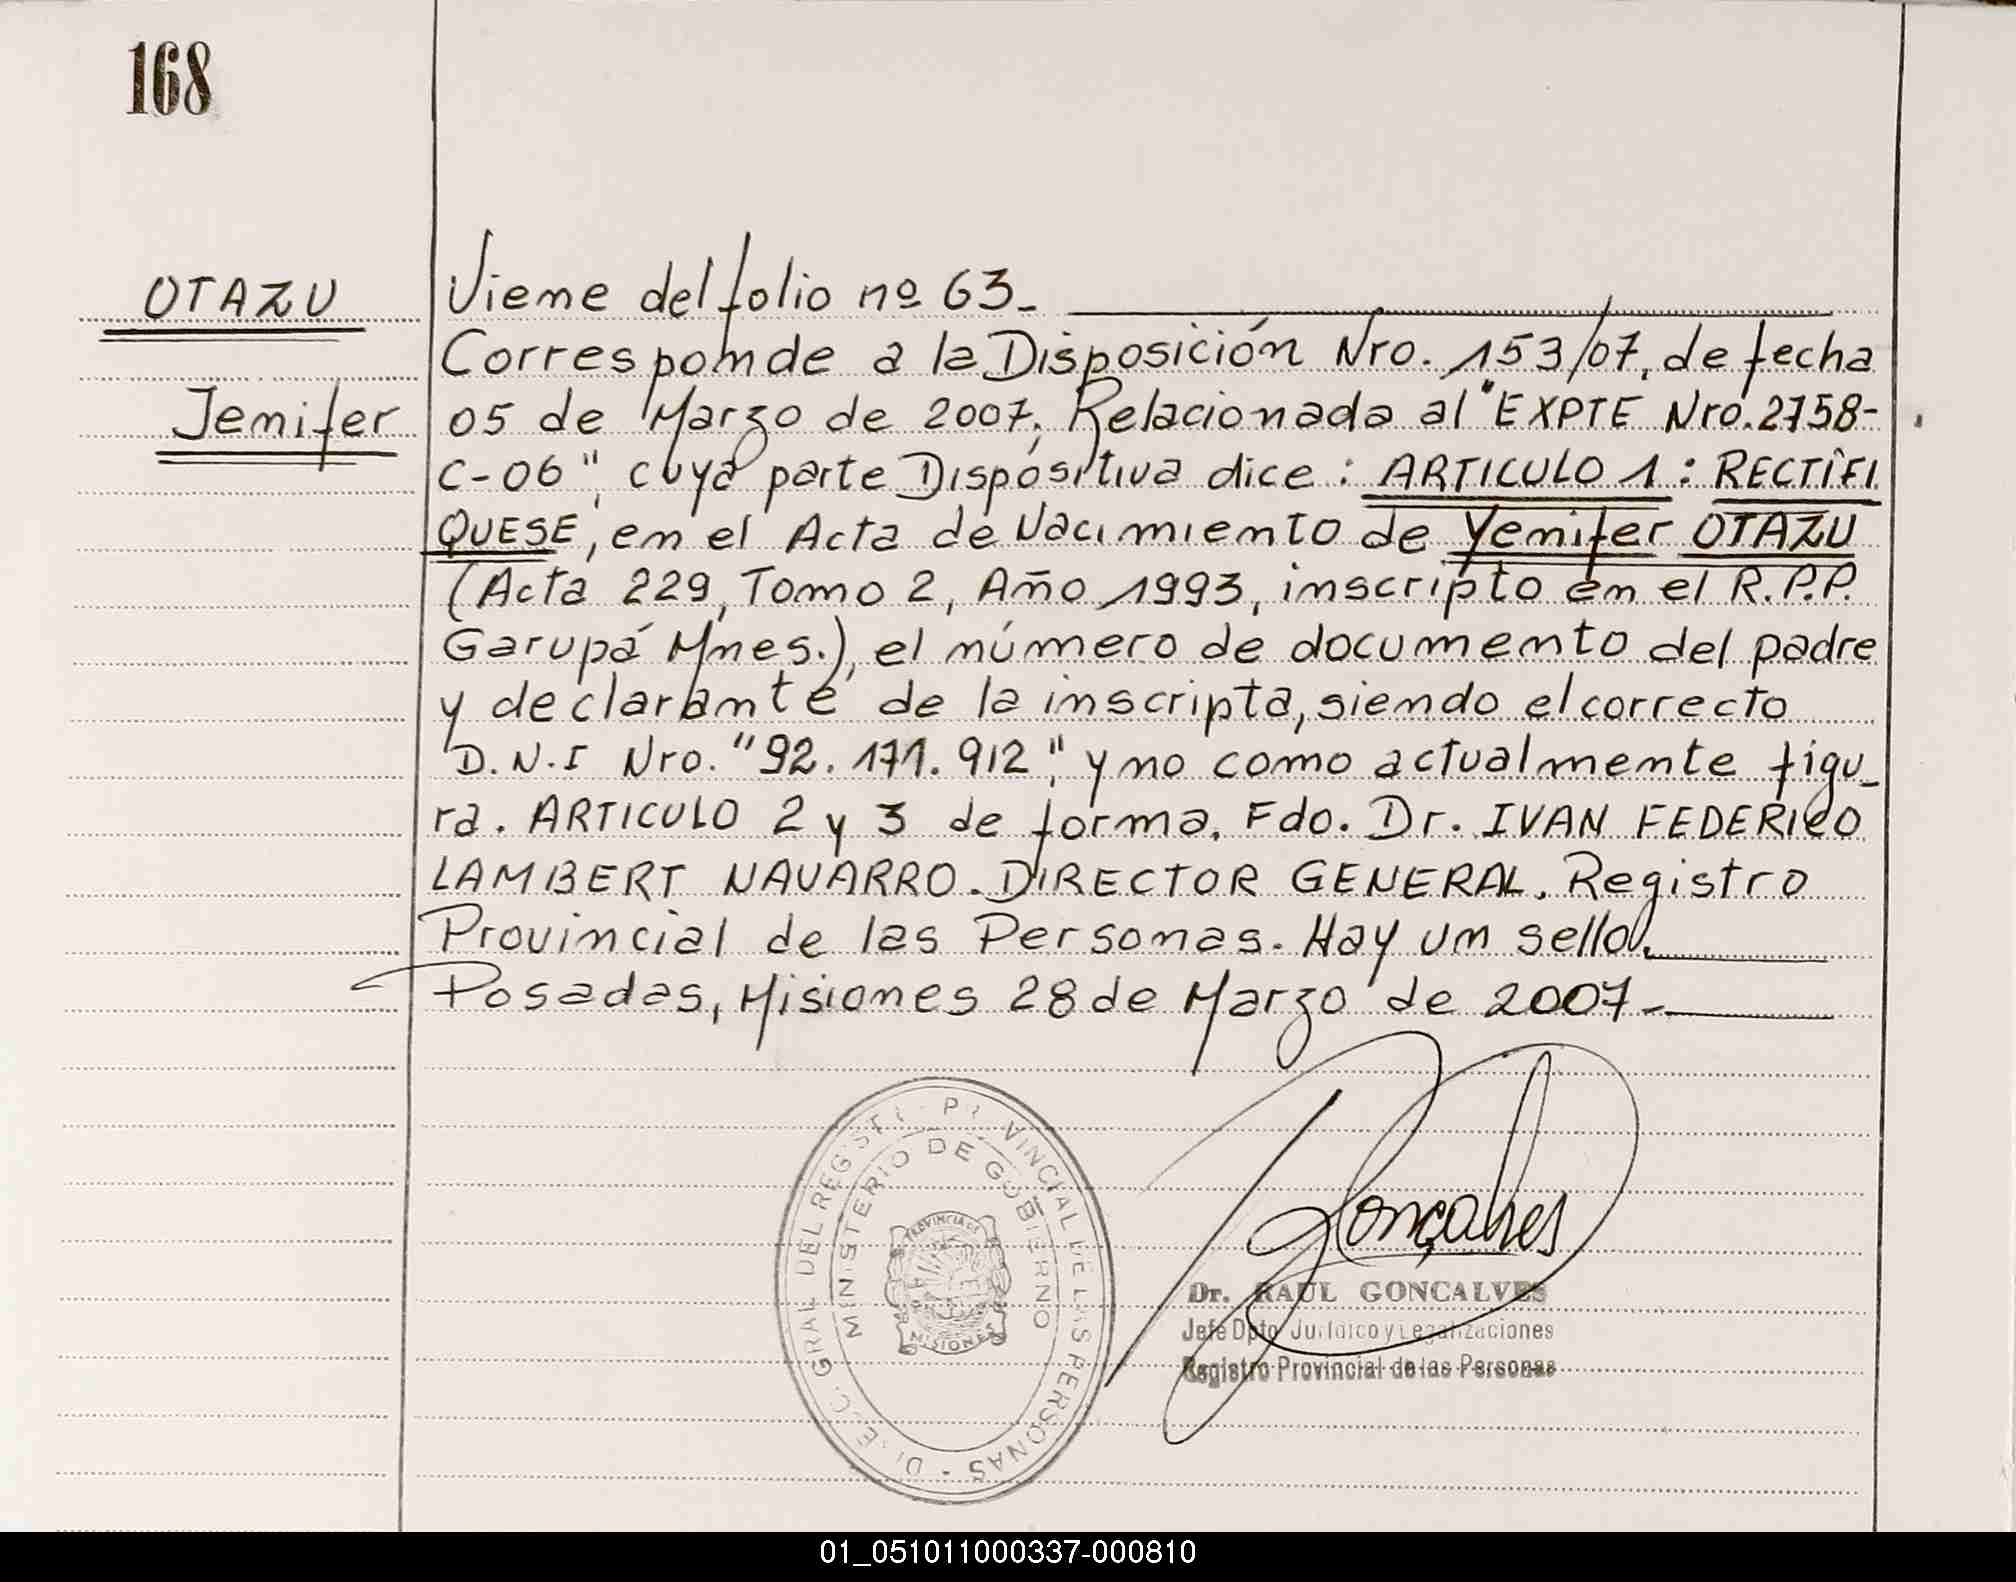 168
OTAZU
Jenifer
Viene del folio nº 63_
Corresponde a la Disposición Nro. 153/07, de fecha
05 de Marzo de 2007, Relacionada al "EXPTE Nro. 2758-
C-06", cuya parte Dispositiva dice: ARTICULO 1: RECTIFI
QUESE, en el Acta de Nacimiento de Yenifer OTAZU
(Acta 229, Tomo 2, Año 1993, inscripto en el R.P.P.
Garupá Mnes.), el número de documento del padre
y declarante de la inscripta, siendo el correcto
D.N.I Nro. "92.171.912", y no como actualmente figu_
ra. ARTICULO 2 y 3 de forma. Fdo. Dr. IVAN FEDERICO
LAMBERT NAVARRO. DIRECTOR GENERAL. Registro
Provincial de las Personas. Hay un sello.
Posadas, Misiones 28 de Marzo de 2007_
MINISTERIO DE GOBIERNO
PROVINCIA DE
MISIONES
Gonçalves
Dr. RAUL GONCALVES
Jefe Dpto Jurídico y Legalizaciones
Registro Provincial de las Personas
01_051011000337-000810